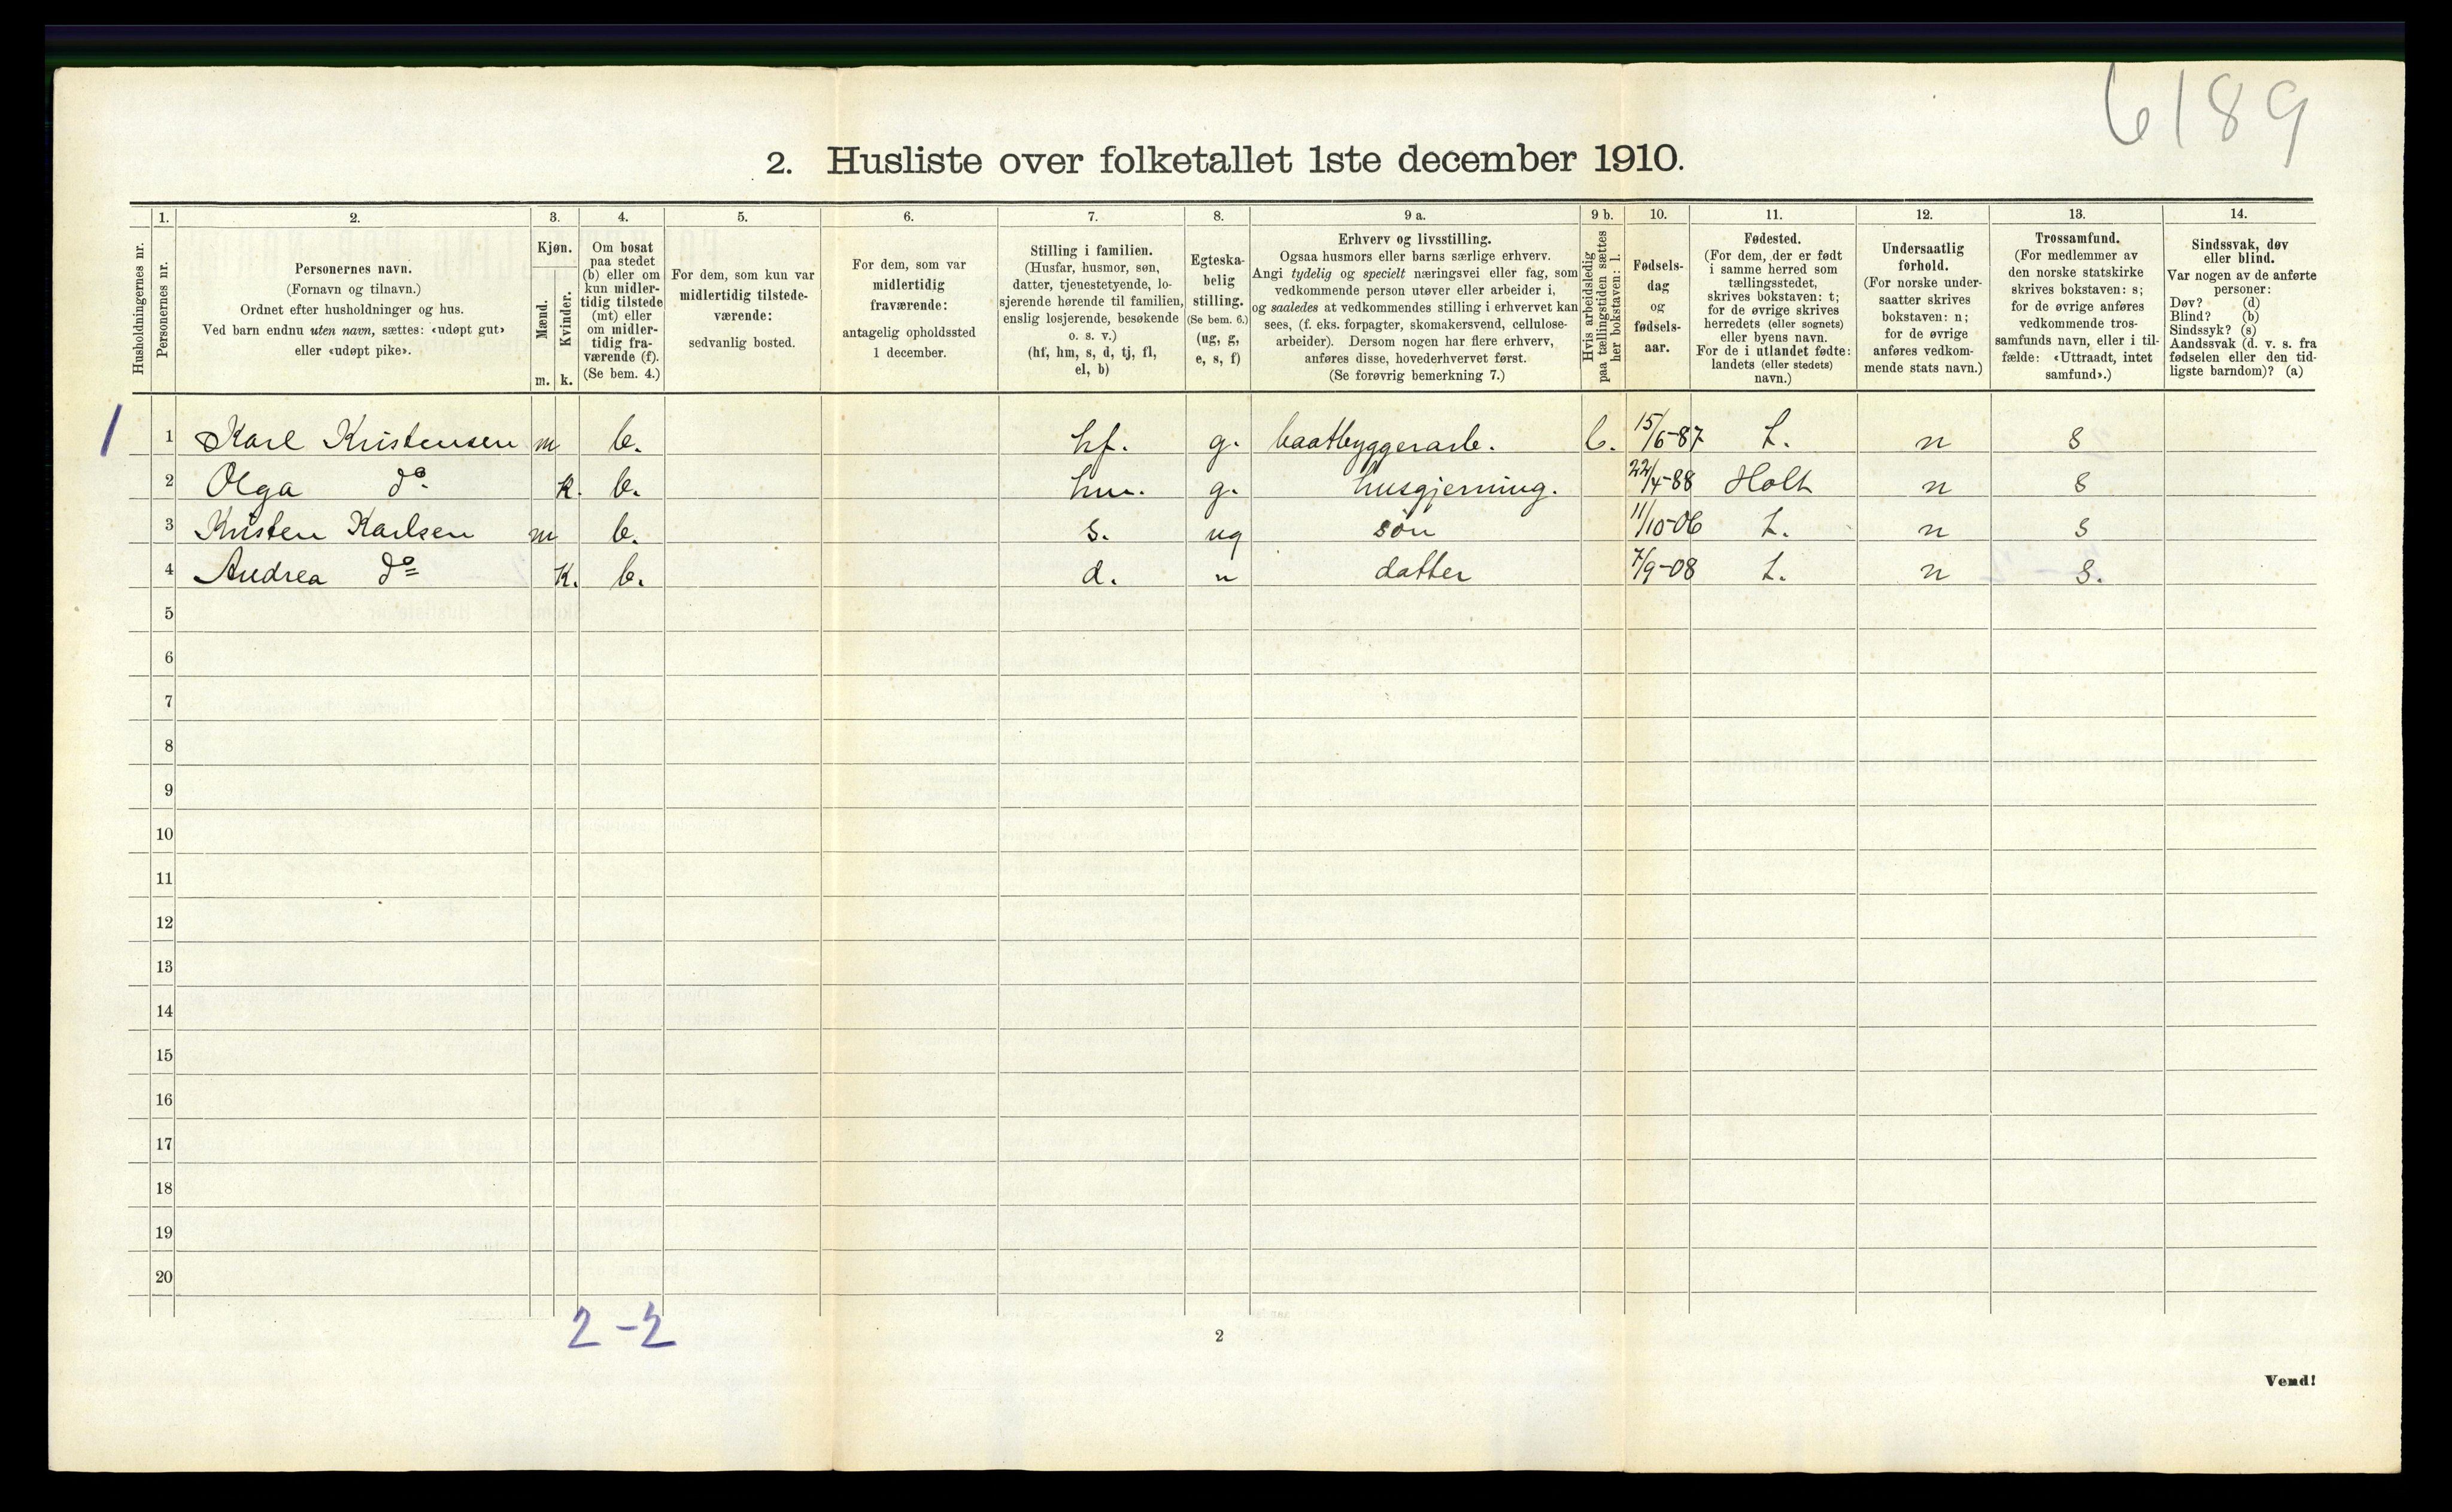 6189
2. Husliste over folketallet 1ste december 1910.
Husholdningernes nr.
1. Personernes nr.
2. Personernes navn.
(Fornavn og tilnavn.)
Ordnet efter husholdninger og hus.
Ved barn endnu uten navn, sættes: «udøpt gut»
eller «udøpt pike».
3. Kjøn.
Mænd. m.
Kvinder. k.
4. Om bosat
paa stedet
(b) eller om
kun midler-
tidig tilstede
(mt) eller
om midler-
tidig fra-
værende (f).
(Se bem. 4.)
5. For dem, som kun var
midlertidig tilstede-
værende:
sedvanlig bosted.
6. For dem, som var
midlertidig
fraværende:
antagelig opholdssted
1 december.
7. Stilling i familien.
(Husfar, husmor, søn,
datter, tjenestetyende, lo-
sjerende hørende til familien,
enslig losjerende, besøkende
o. s. v.)
(hf, hm, s, d, tj, fl,
el, b)
8. Egteska-
belig
stilling.
(Se bem. 6.)
(ug, g,
e, s, f)
9 a. Erhverv og livsstilling.
Ogsaa husmors eller barns særlige erhverv.
Angi tydelig og specielt næringsvei eller fag, som
vedkommende person utøver eller arbeider i,
og saaledes at vedkommendes stilling i erhvervet kan
sees, (f. eks. forpagter, skomakersvend, cellulose-
arbeider). Dersom nogen har flere erhverv,
anføres disse, hovederhvervet først.
(Se forøvrig bemerkning 7.)
9 b. Hvis arbeidsledig
paa tællingstiden sættes
her bokstaven: l.
10. Fødsels-
dag
og
fødsels-
aar.
11. Fødested.
(For dem, der er født
i samme herred som
tællingsstedet,
skrives bokstaven: t;
for de øvrige skrives
herredets (eller sognets)
eller byens navn.
For de i utlandet fødte:
landets (eller stedets)
navn.)
12. Undersaatlig
forhold.
(For norske under-
saatter skrives
bokstaven: n;
for de øvrige
anføres vedkom-
mende stats navn.)
13. Trossamfund.
(For medlemmer av
den norske statskirke
skrives bokstaven: s;
for de øvrige anføres
vedkommende tros-
samfunds navn, eller i til-
fælde: «Uttraadt, intet
samfund».)
14. Sindssvak, døv
eller blind.
Var nogen av de anførte
personer:
Døv? (d)
Blind? (b)
Sindssyk? (s)
Aandssvak (d. v. s. fra
fødselen eller den tid-
ligste barndom)? (a)
1 1 Karl Kristensen m b. hf. g. baatbyggerarb. 15/6-87 t. n s
2 Olga do. k. b. hm. g. husgjerning. 22/4-88 Holt n s
3 Kristen Karlsen m b. s. ug søn 11/10-06 t. n s
4 Andrea do k. b. d. " datter 7/9-08 t. n s.
5
6
7
8
9
10
11
12
13
14
15
16
17
18
19
20
2-2
2
Vend!